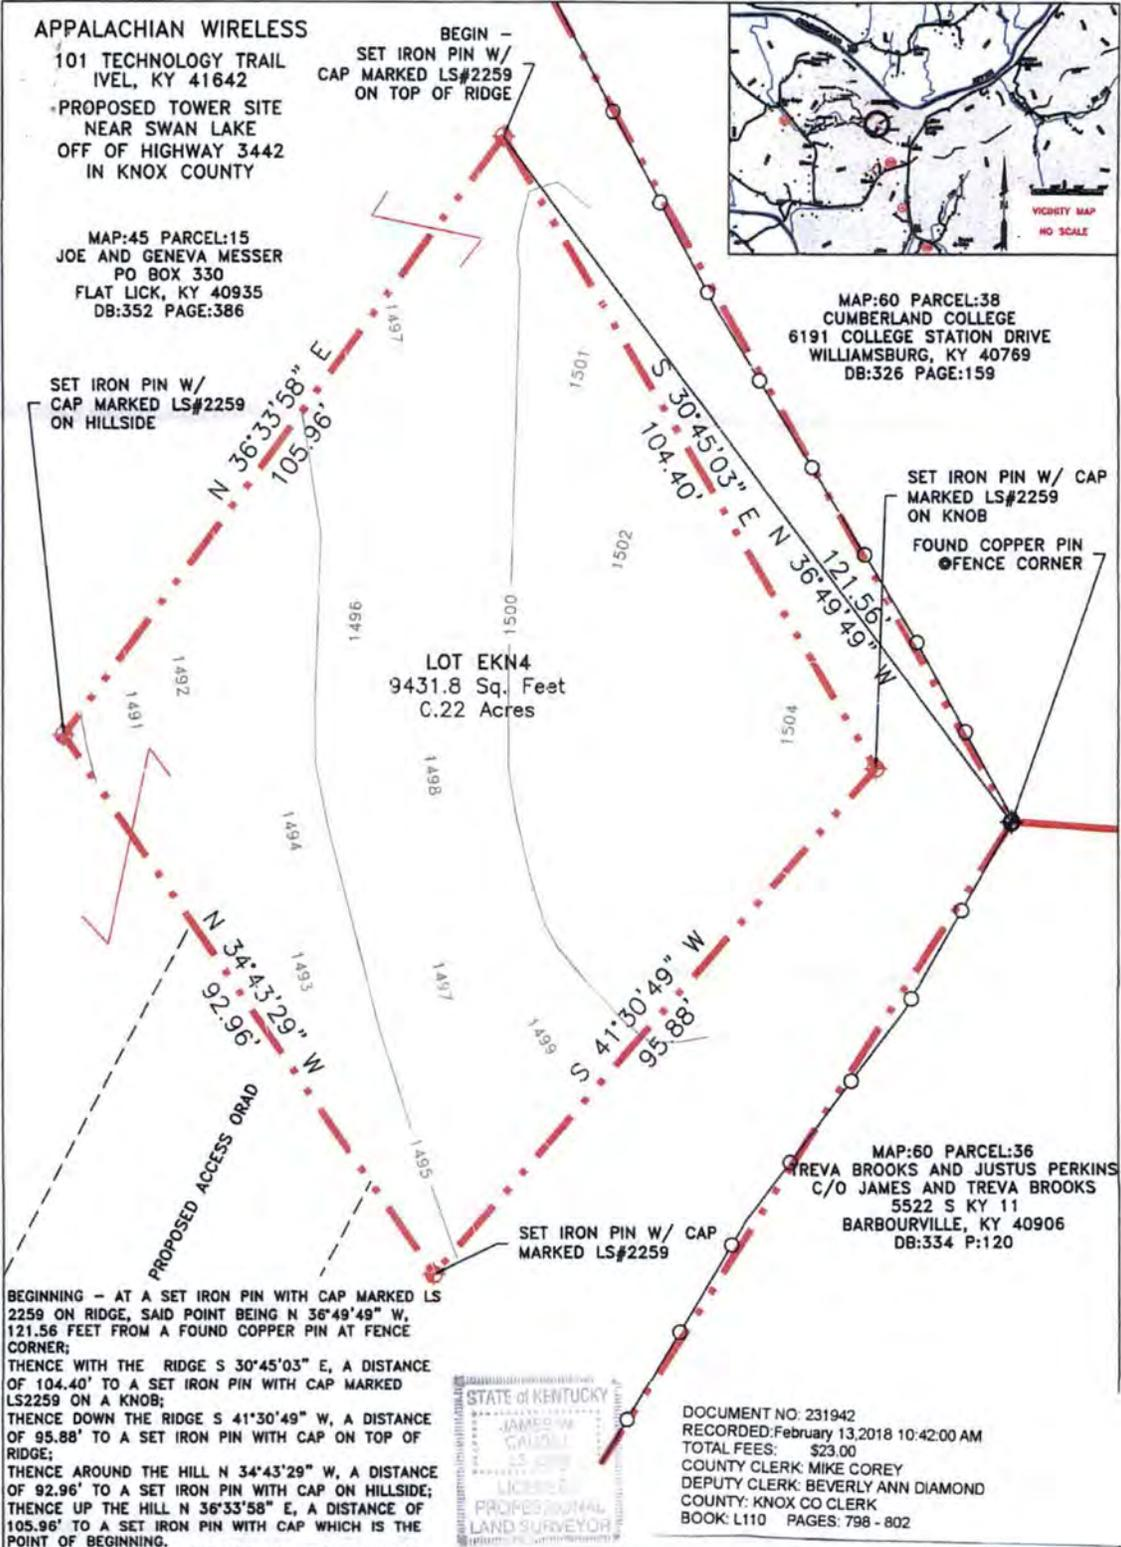 APPALACHIAN WIRELESS
101 TECHNOLOGY TRAIL
IVEL, KY 41642
PROPOSED TOWER SITE
NEAR SWAN LAKE
OFF OF HIGHWAY 3442
IN KNOX COUNTY
BEGIN -
SET IRON PIN W/
CAP MARKED LS#2259
ON TOP OF RIDGE
VICINITY MAP
NO SCALE
MAP:45 PARCEL:15
JOE AND GENEVA MESSER
PO BOX 330
FLAT LICK, KY 40935
DB:352 PAGE:386
MAP:60 PARCEL:38
CUMBERLAND COLLEGE
6191 COLLEGE STATION DRIVE
WILLIAMSBURG, KY 40769
DB:326 PAGE:159
SET IRON PIN W/
CAP MARKED LS#2259
ON HILLSIDE
N 36°33'58" E
105.96'
1497
1501
S 30°45'03" E
104.40'
SET IRON PIN W/ CAP
MARKED LS#2259
ON KNOB
FOUND COPPER PIN
@FENCE CORNER
121.56'
N 36°49'49" W
1502
1496
1500
1492
1491
LOT EKN4
9431.8 Sq. Feet
0.22 Acres
1504
1498
1494
N 34°43'29" W
92.96'
1493
1497
1499
S 41°30'49" W
95.88'
1495
PROPOSED ACCESS ORAD
MAP:60 PARCEL:36
TREVA BROOKS AND JUSTUS PERKINS
C/O JAMES AND TREVA BROOKS
5522 S KY 11
BARBOURVILLE, KY 40906
DB:334 P:120
SET IRON PIN W/ CAP
MARKED LS#2259
BEGINNING - AT A SET IRON PIN WITH CAP MARKED LS
2259 ON RIDGE, SAID POINT BEING N 36°49'49" W,
121.56 FEET FROM A FOUND COPPER PIN AT FENCE
CORNER;
THENCE WITH THE RIDGE S 30°45'03" E, A DISTANCE
OF 104.40' TO A SET IRON PIN WITH CAP MARKED
LS2259 ON A KNOB;
THENCE DOWN THE RIDGE S 41°30'49" W, A DISTANCE
OF 95.88' TO A SET IRON PIN WITH CAP ON TOP OF
RIDGE;
THENCE AROUND THE HILL N 34°43'29" W, A DISTANCE
OF 92.96' TO A SET IRON PIN WITH CAP ON HILLSIDE;
THENCE UP THE HILL N 36°33'58" E, A DISTANCE OF
105.96' TO A SET IRON PIN WITH CAP WHICH IS THE
POINT OF BEGINNING.
STATE of KENTUCKY
JAMES W.
LICENSED
PROFESSIONAL
LAND SURVEYOR
DOCUMENT NO: 231942
RECORDED:February 13,2018 10:42:00 AM
TOTAL FEES: $23.00
COUNTY CLERK: MIKE COREY
DEPUTY CLERK: BEVERLY ANN DIAMOND
COUNTY: KNOX CO CLERK
BOOK: L110 PAGES: 798 - 802